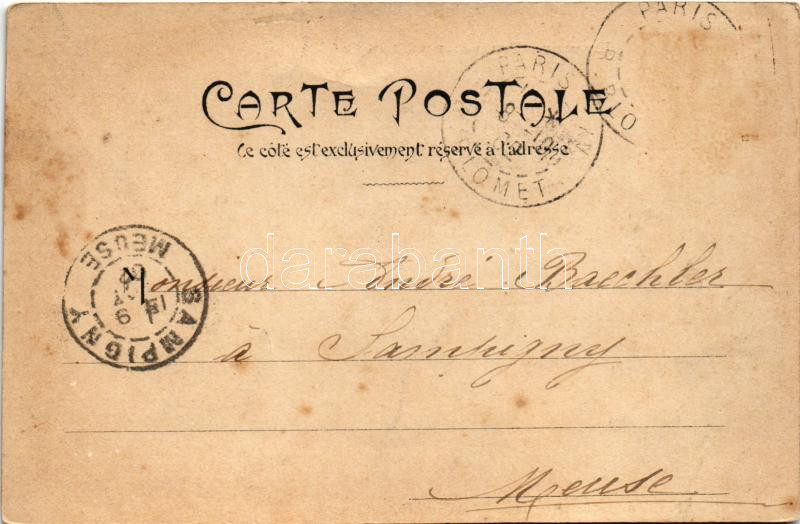 CARTE POSTALE
Ce côté est exclusivement réservé à l'adresse
PARIS
PARIS
LOMET
SAMPIGNY
MEUSE
darabanth
Monsieur André Baechler
à Sampigny
Meuse